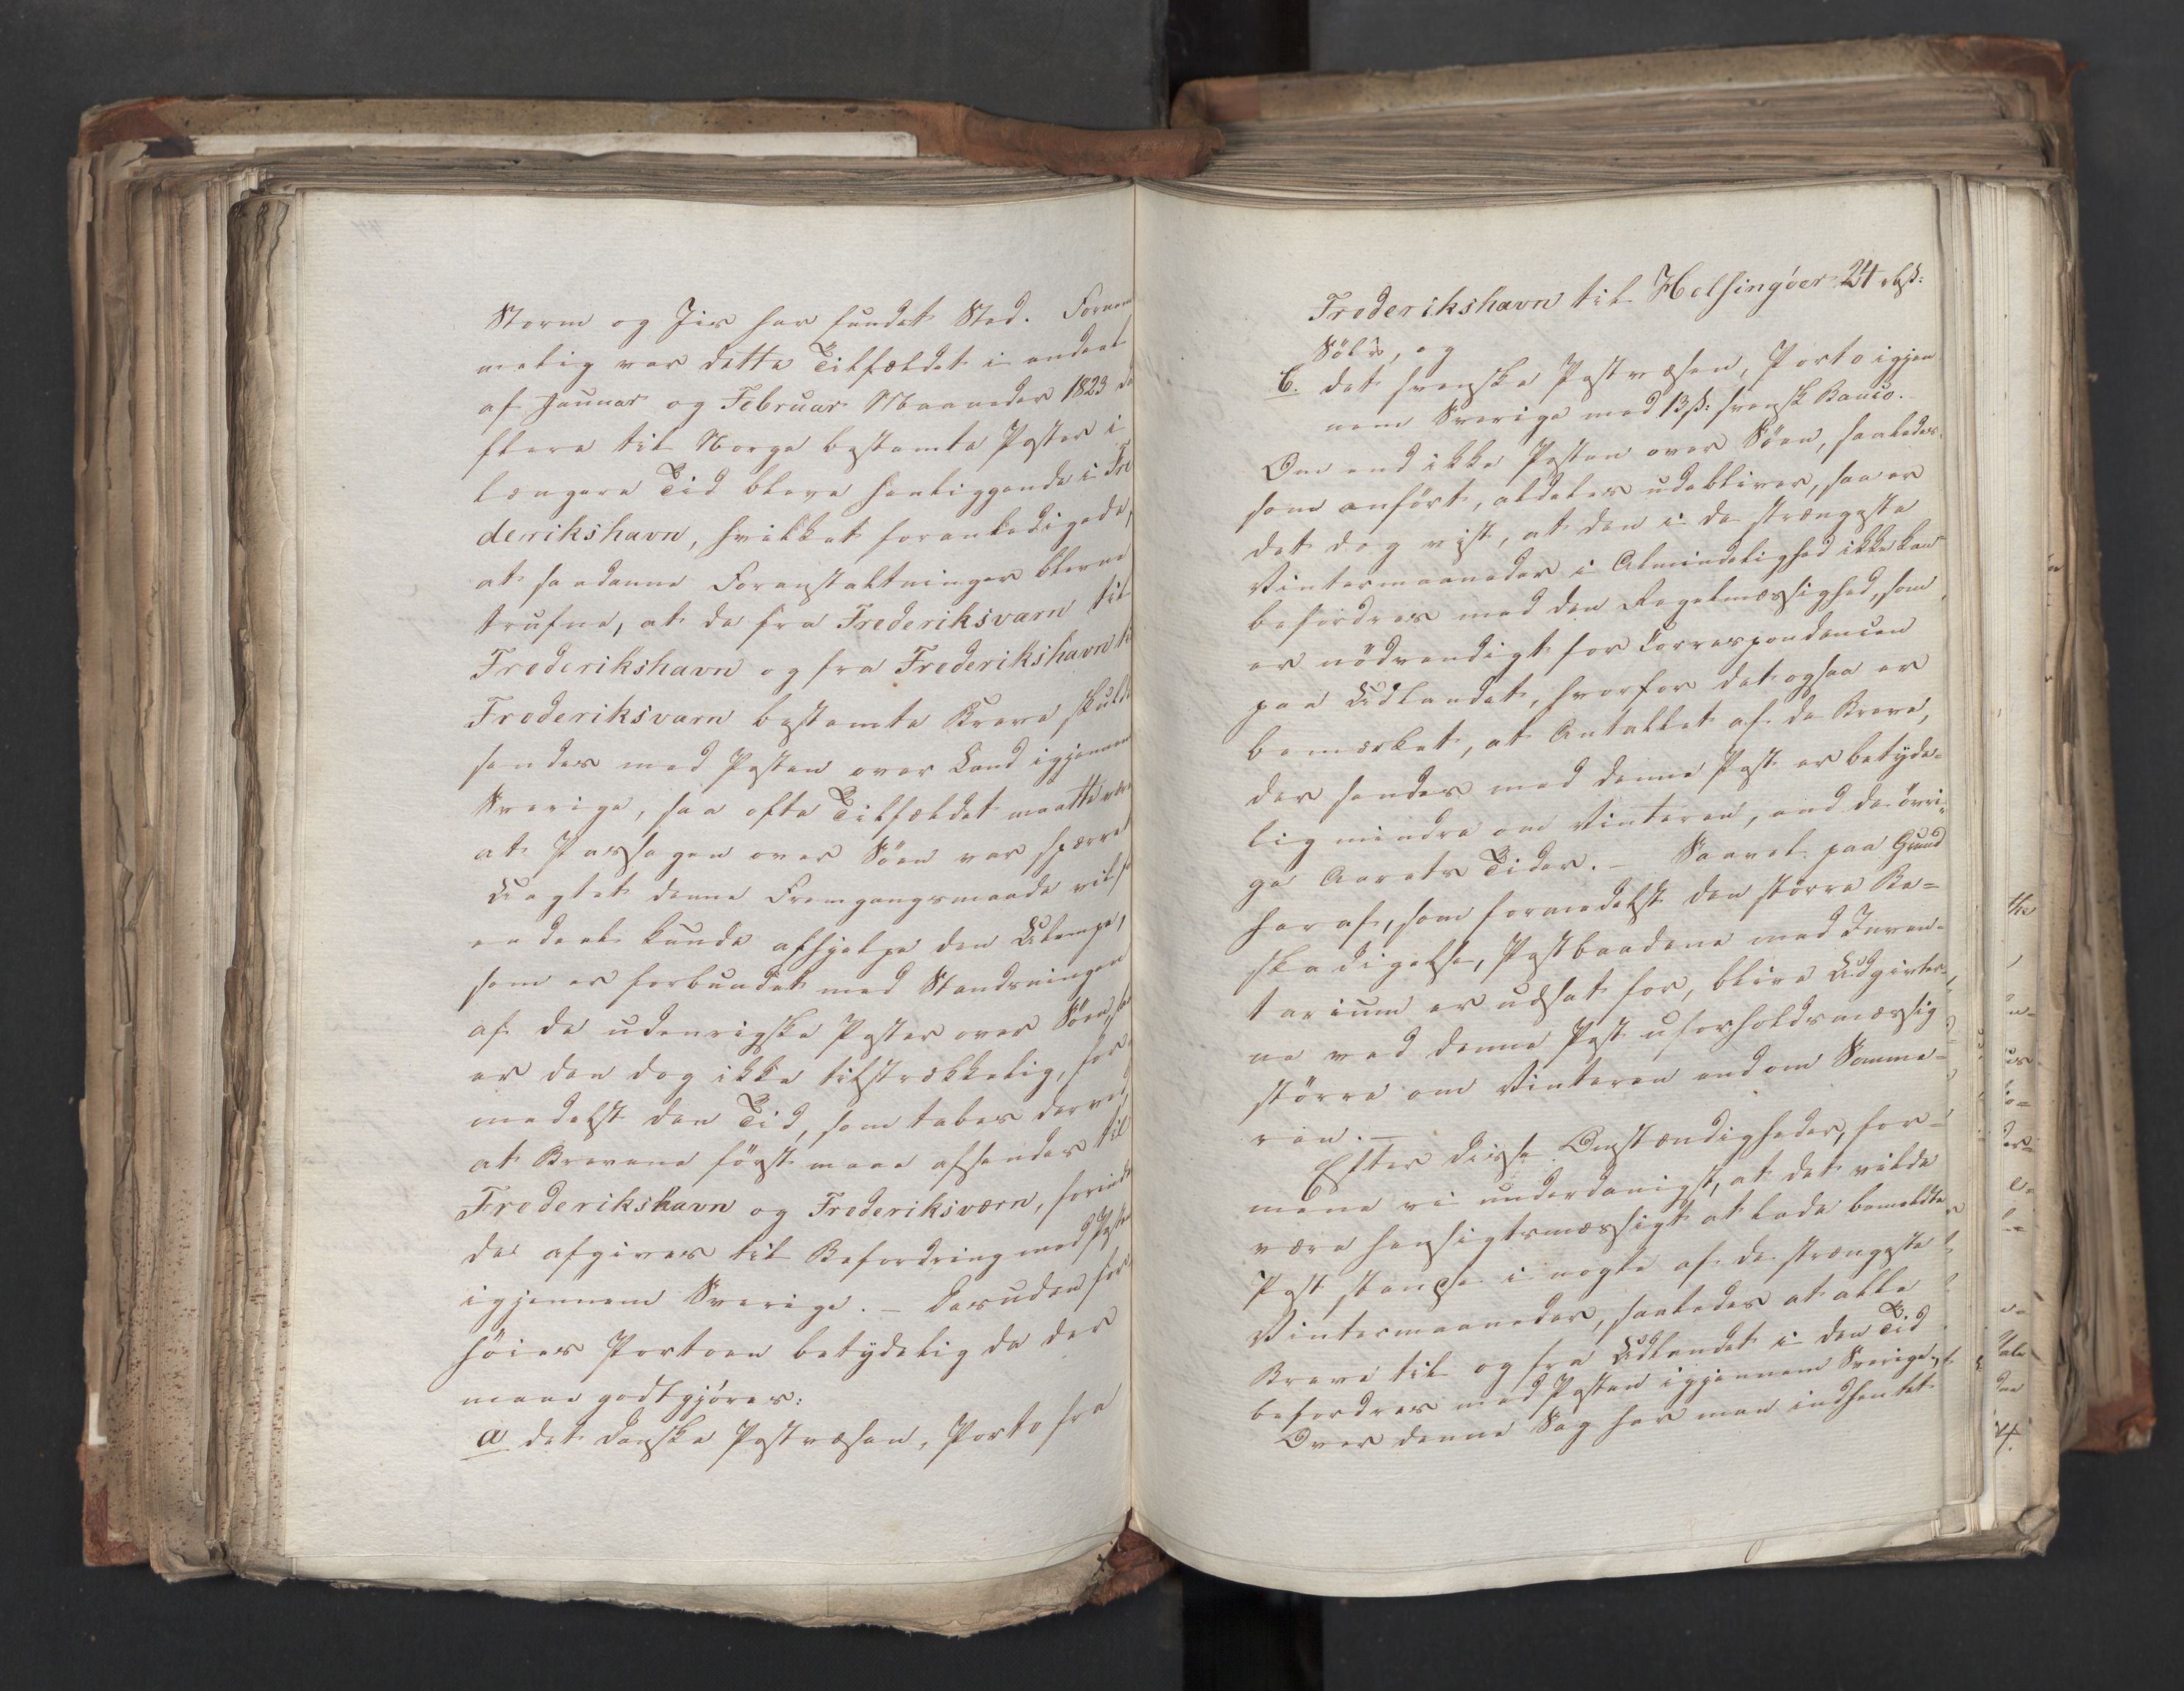 Storm og Jis har fundet Sted. Fornem
melig var dette Tilfældet i endeel
af Januar og Februar Maaneder 1823 da
flere til Norge bestemte Poster i
længere Tid bleve henliggende i Fre
derikshavn, hvilket foranledigede,
at saadanne Foranstaltninger bleve
trufne, at de fra Frederiksvarn til
Frederikshavn og fra Frederikshavn t
Frederiksvarn bestemte Breve skuld
sendes med Posten over Land igjennem
Sverige, saa ofte Tilfældet maatte vær
at Passagen over Söen var spærret
Uagtet denne Fremgangsmaade vel
endeel kunde afhjelpe den Ulempe,
som er forbundet med Standsningen
af de udenrigske Poster over Söen, saa
er den dog ikke tilstrækkelig, for
medelst den Tid, som tabes derved,
at Brevene först maae afsendes til
Frederikshavn og Frederiksværn, forind
de afgives til Befordring med Posten
igjennem Sverige. – Desuden for
höies Portoen betydelig da der
maae godtgjöres:
a det danske Postvæsen, Porto fra
Frederikshavn til Helsingöer 24 rbß:
Sölv, og
b. det svenske Postvæsen, Porto igjen
nem Sverige med 13ß: svensk Banco.
Om end ikke Posten over Söen, saaledes
som anfört, aldeles udebliver, saa er
det dog vist, at den i de strængeste
Vintermaaneder i Almindelighed ikke kan
befordres med den Regelmæssighed, som
er nödvendigt for Correspondencen
paa Udlandet, hvorfor det ogsaa er
bemærket, at Antallet af de Breve,
der sendes med denne Post er betyde=
lig mindre om Vinteren, end de övri=
ge Aarets Tider. – Saavel paa Grund
heraf, som formedelst den större Be=
skadigelse, Postbaadene med Inven=
tarium er udsat for, blive Udgivter=
ne ved denne Post uforholdsmæssig
större om Vinteren end om Somme=
ren. –
Efter disse Omstændigheder, for=
mene vi underdanigst, at det vilde
være hensigtsmæssigt at lade bemeldte
Post standse i nogle af de strængeste
Vintermaaneder, saaledes at alle
Breve til og fra Udlandet i den Tid
befordres med Posten igjennem Sverige
Over denne Sag har man indhentet